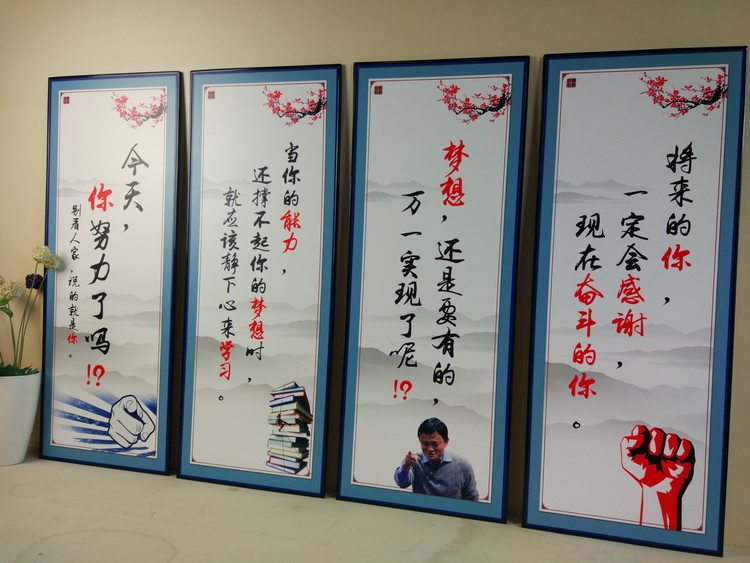 今天，
你努力了吗!?
别看人家，说的就是你。
当你的能力，
还撑不起你的梦想时，
就应该静下心来学习。
梦想，还是要有的，
万一实现了呢!?
将来的你，
一定会感谢，
现在奋斗的你。